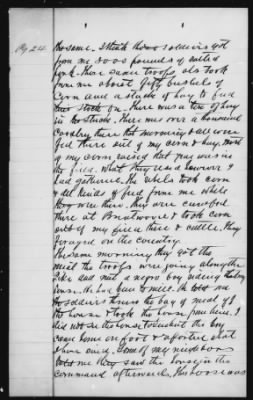 Pg 24.
the same. I think those soldiers got
from me 3000 pounds of salted
pork. These same troops also took
from me about fifty bushels of
corn and a stack of hay to feed
their stock on. There was a ton of hay
in the stack. There was over a thousand
cavalry there that morning & all were
fed there out of my corn & hay. Most
of my corn raised that year was in
the field. What they used however I
had gathered. The rebels took corn
& all kinds of feed from me while
they were there. They were camped
there at Brentwood & took corn
out of my field there & cattle. They
foraged on the country.
The same morning they got the
meat the troops were going along the
pike and met a negro boy riding the bay
horse. He had been to mill. He told me
the soldiers threw the bag of meal off
the horse & took the horse from him. I
did not see the horse taken but the boy
came home on foot & reported what
I have said. Some of my neighbors
told me they saw the horse in the
command afterwards. This horse was